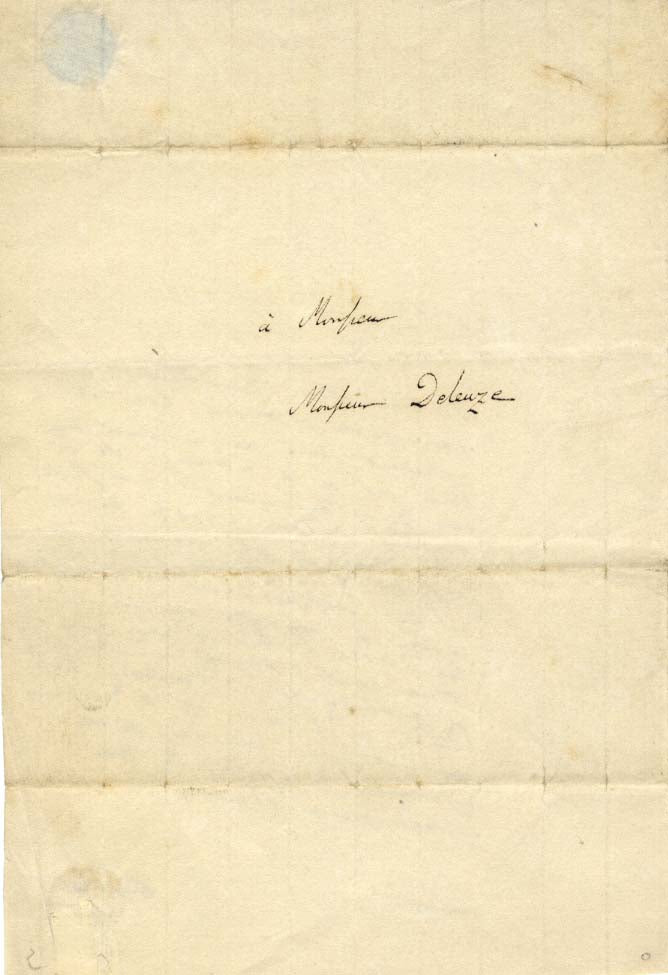 à Monsieur
Monsieur Deleuze